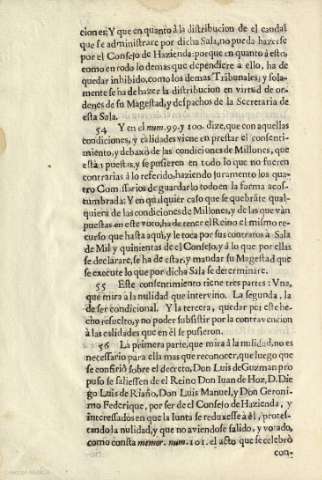 ciones; Y que en quanto à la distribucion de el caudal
que se administrare por dicha Sala, no pueda hazerse
por el Consejo de Hazienda: porque en quanto à esto,
como en todo lo demas que dependiere à ello, ha de
quedar inhibido, como los demas Tribunales; y sola-
mente se ha de hazer la distribucion en virtud de or-
denes de su Magestad, y despachos de la Secretaria de
esta Sala.
54 Y en el num. 99. y 100. dize, que con aquellas
condiciones, y calidades viene en prestar el consenti-
miento, y debaxo de las condiciones de Millones, que
estàn puestas, y se pusieren en todo lo que no fueren
contrarias à lo referido, haziendo juramento los qua-
tro Comissarios de guardarlo todo en la forma acos-
tumbrada: Y en qualquier caso que se quebrāte qual-
quiera de las condiciones de Millones, y de las que vàn
puestas en este voto, ha de tener el Reino el mismo re-
curso que hasta aqui, y le toca por sus contratos à Sala
de Mil y quinientas de el Consejo, y à lo que por ellas
se declarare, se ha de estar, y mandar su Magestad que
se execute lo que por dicha Sala se determinare.
55 Este consentimiento tiene tres partes: Vna,
que mira à la nulidad que intervino. La segunda, la
de ser condicional. Y la tercera, quedar por este he-
cho resuelto, y no poder subsistir por la contravencion
à las calidades que en èl se pusieron.
56 La primera parte, que mira à la nulidad, no es
necessario para ella mas que reconocer, que luego que
se confiriò sobre el decreto, Don Luis de Guzman pro
puso se saliessen de el Reino Don Iuan de Hoz, D. Die
go Luis de Riaño, Don Luis Manuel, y Don Geroni-
mo Federique, por ser de el Consejo de Hazienda, y
interessados en que la Iunta se reduxesse à èl, protes-
tando la nulidad, y que no aviendose salido, y votado,
como consta memor. num. 101. el acto que se celebrò
con-